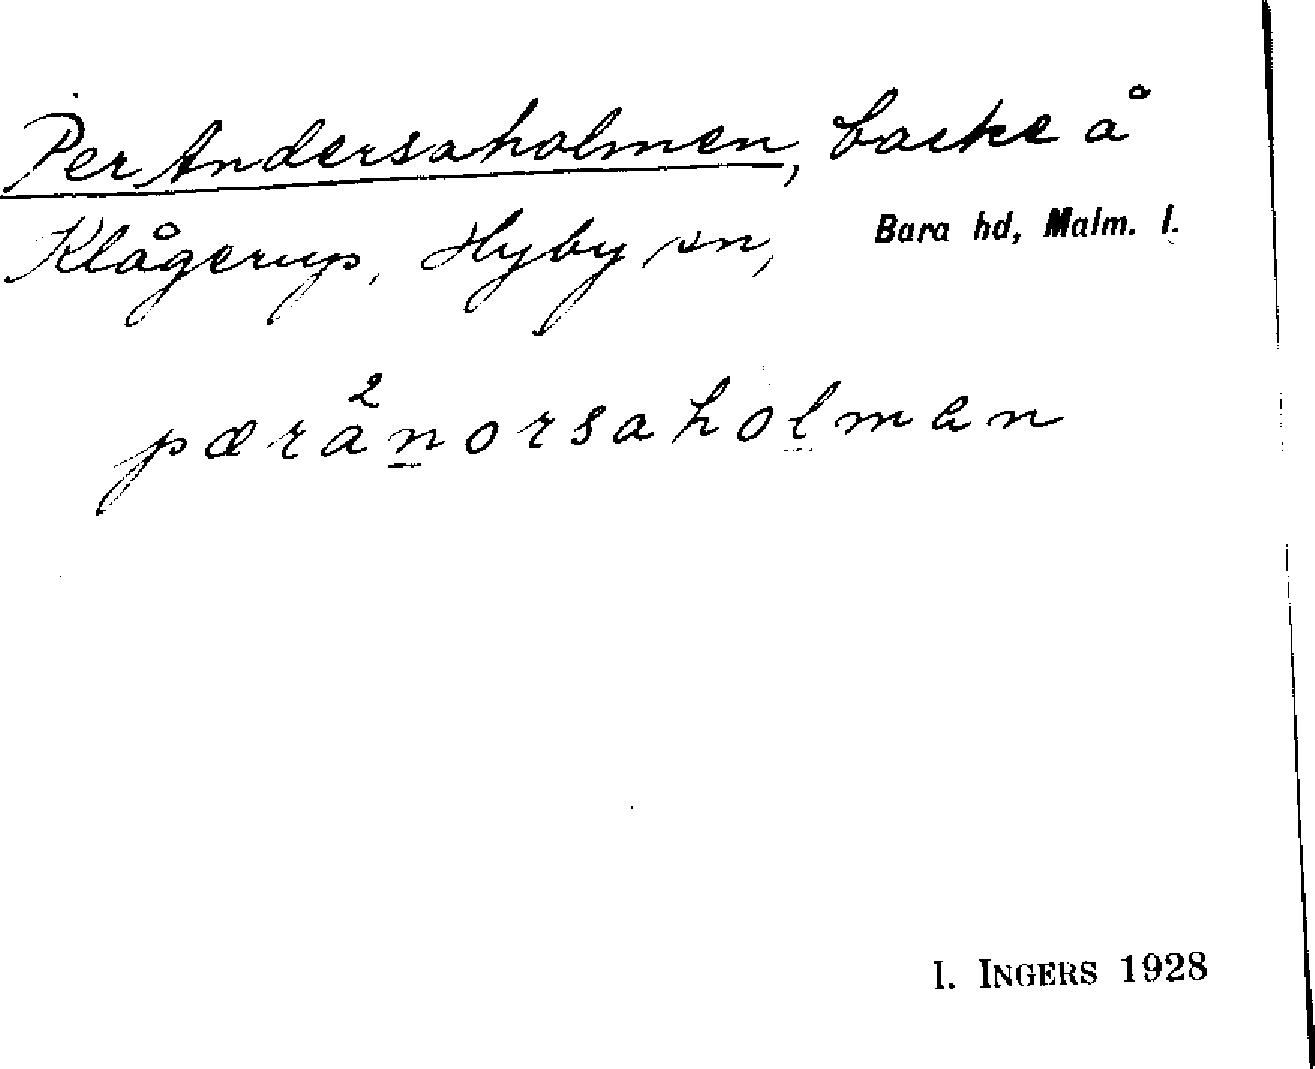 Per Andersaholmen, backe å
Klågerup, Hyby sn, Bara hd, Malm. l.
pæra²norsaholmen
I. INGERS 1928